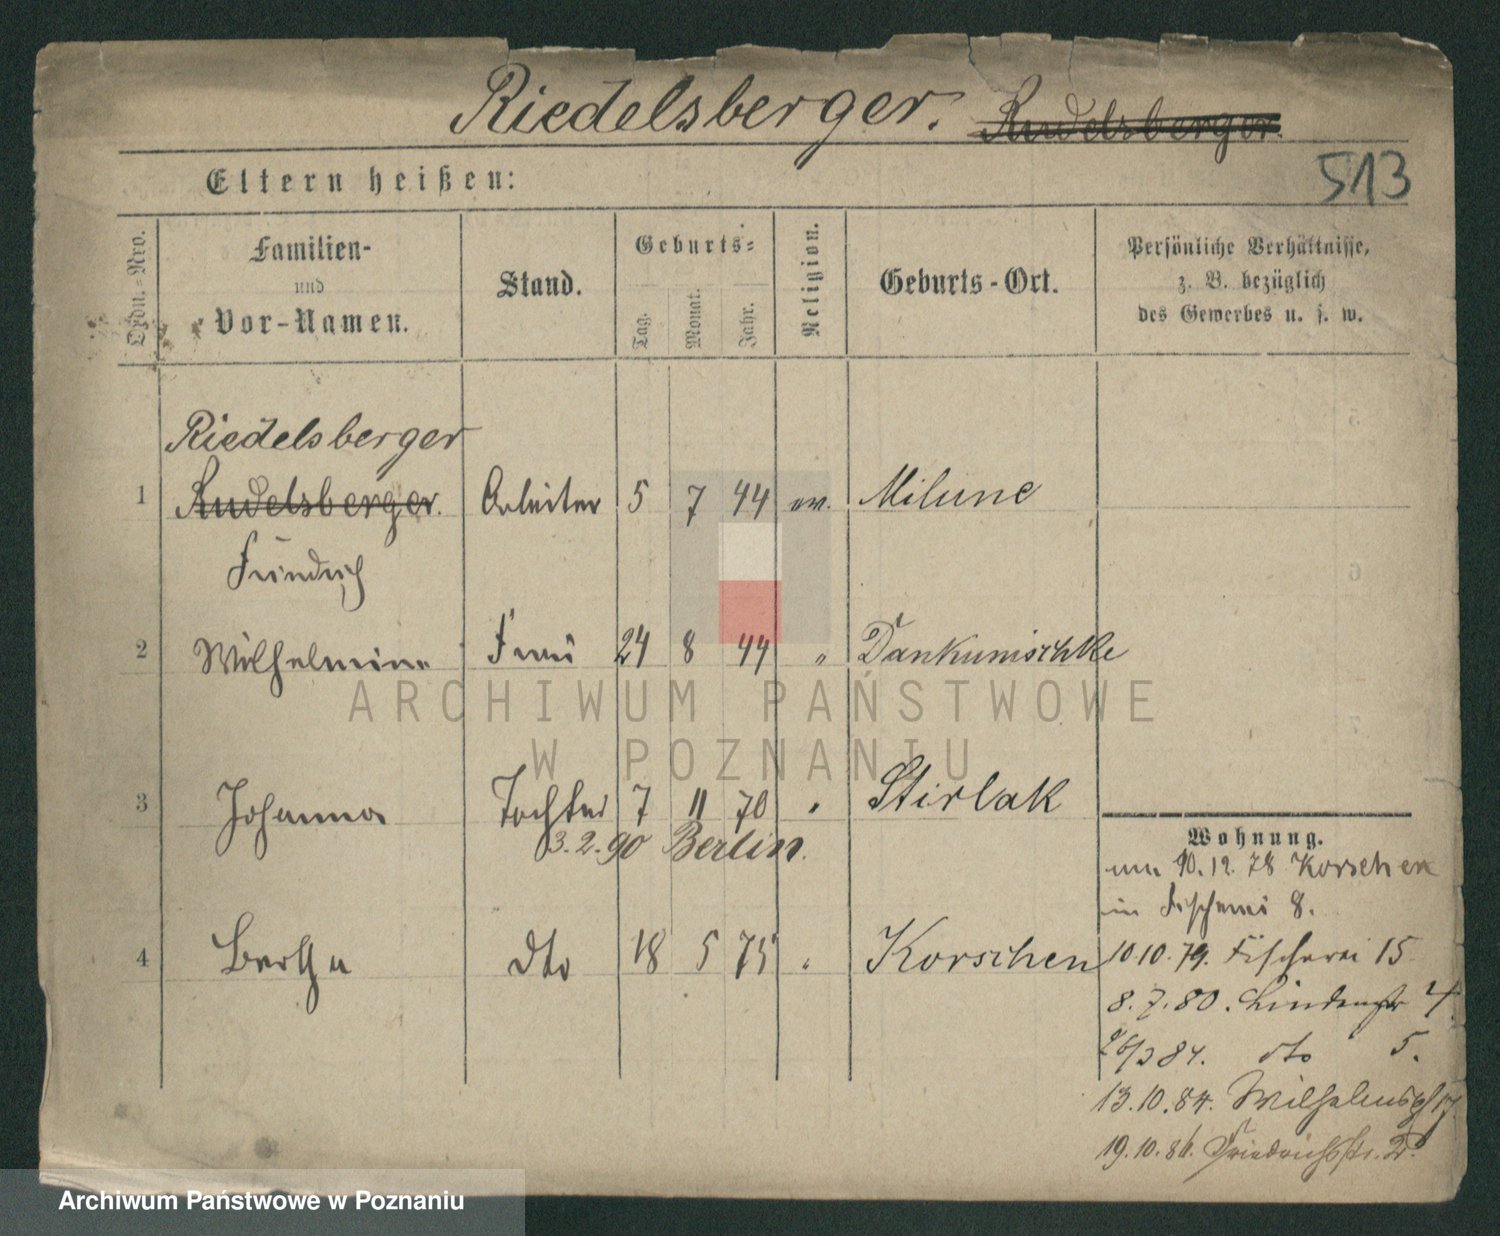 Riedelsberger. Rudelsberger.
513
Eltern heißen:
Ordn.-Nro.
Familien-
und
Vor-Namen.
Stand.
Geburts-
Tag.
Monat.
Jahr.
Religion.
Geburts-Ort.
Persönliche Verhältnisse,
z. B. bezüglich
des Gewerbes u. s. w.
Riedelsberger
1 Rudelsberger. Arbeiter 5 7 44 ev. Milune
Friedrich
2 Wilhelmine Frau 24 8 44 " Dankunischke
3 Johanna Tochter 7 11 70 " Stirlak
3.2.90 Berlin.
4 Bertha dto 18 5 75 " Korschen
Wohnung.
10.12.78 Korschen
in Fischerei 8.
10.10.79. Fischerei 15
8.7.80. Lindenstr 4.
84. dto 5.
13.10.84. 17
19.10.86. Friedrichstr. 2
ARCHIWUM PAŃSTWOWE
W POZNANIU
Archiwum Państwowe w Poznaniu